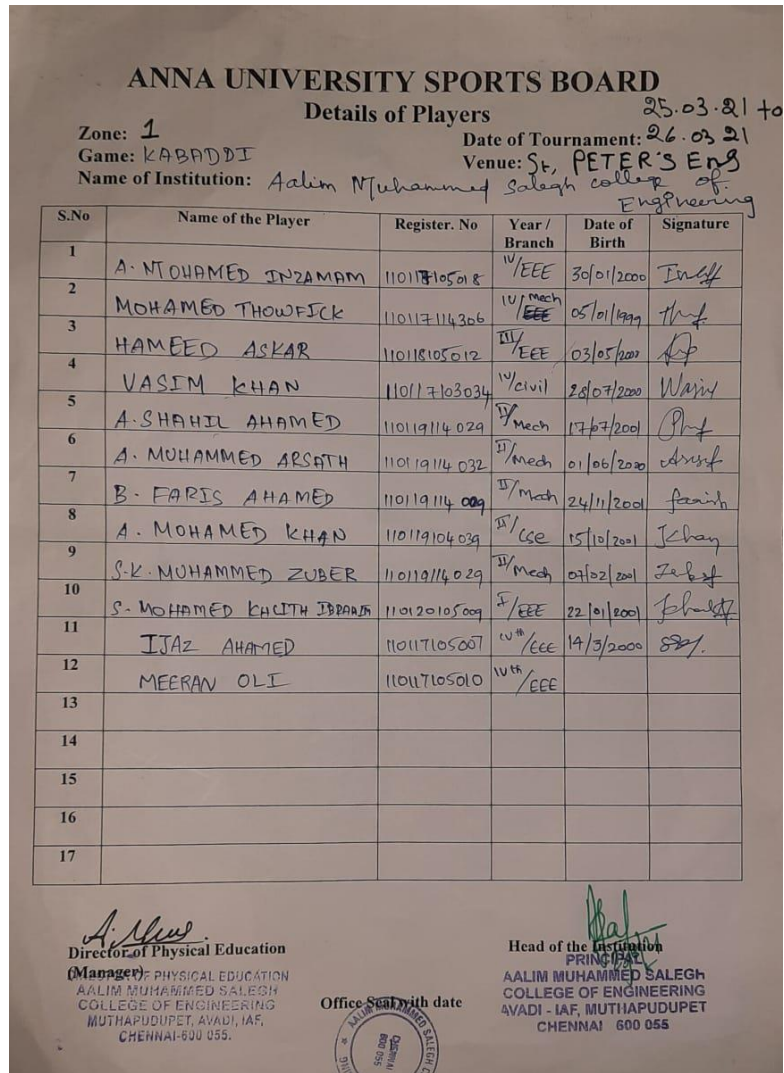 ANNA UNIVERSITY SPORTS BOARD
Details of Players
25.03.21 to
Zone: 1
Date of Tournament: 26.03 21
Game: KABADDI
Venue: St, PETER'S Eng
Name of Institution: Aalim Muhammed Salegh college of
Engineering
S.No Name of the Player Register. No Year / Branch Date of Birth Signature
1 A. MOHAMED INZAMAM 110117105018 IV/EEE 30/01/2000
2 MOHAMED THOWFICK 110117114306 IV/Mech 05/01/1999
3 HAMEED ASKAR 110118105012 III/EEE
4 VASIM KHAN 110117103034 IV/civil 28/07/2000
5 A. SHAHIL AHAMED 110119114029 II/Mech 17/07/2001
6 A. MUHAMMED ARSATH 110119114032 II/Mech 01/06/2000
7 B. FARIS AHAMED 110119114009 II/Mech 24/11/2001 farish
8 A. MOHAMED KHAN 110119104039 II/CSE 15/10/2001 Khan
9 S.K. MUHAMMED ZUBER 110119114029 II/Mech 07/02/2001
10 S. MOHAMED 110120105009 I/EEE 22/01/2001
11 IJAZ AHAMED 110117105007 IVth/EEE 14/3/2000
12 MEERAN OLI 110117105010 IVth/EEE
13
14
15
16
17
Director of Physical Education
(Manager)
DIRECTOR OF PHYSICAL EDUCATION
AALIM MUHAMMED SALEGH
COLLEGE OF ENGINEERING
MUTHAPUDUPET, AVADI, IAF,
CHENNAI-600 055.
Office Seal with date
AALIM MUHAMMED SALEGH
CHENNAI
600 055
Head of the Institution
PRINCIPAL
AALIM MUHAMMED SALEGH
COLLEGE OF ENGINEERING
AVADI - IAF, MUTHAPUDUPET
CHENNAI 600 055